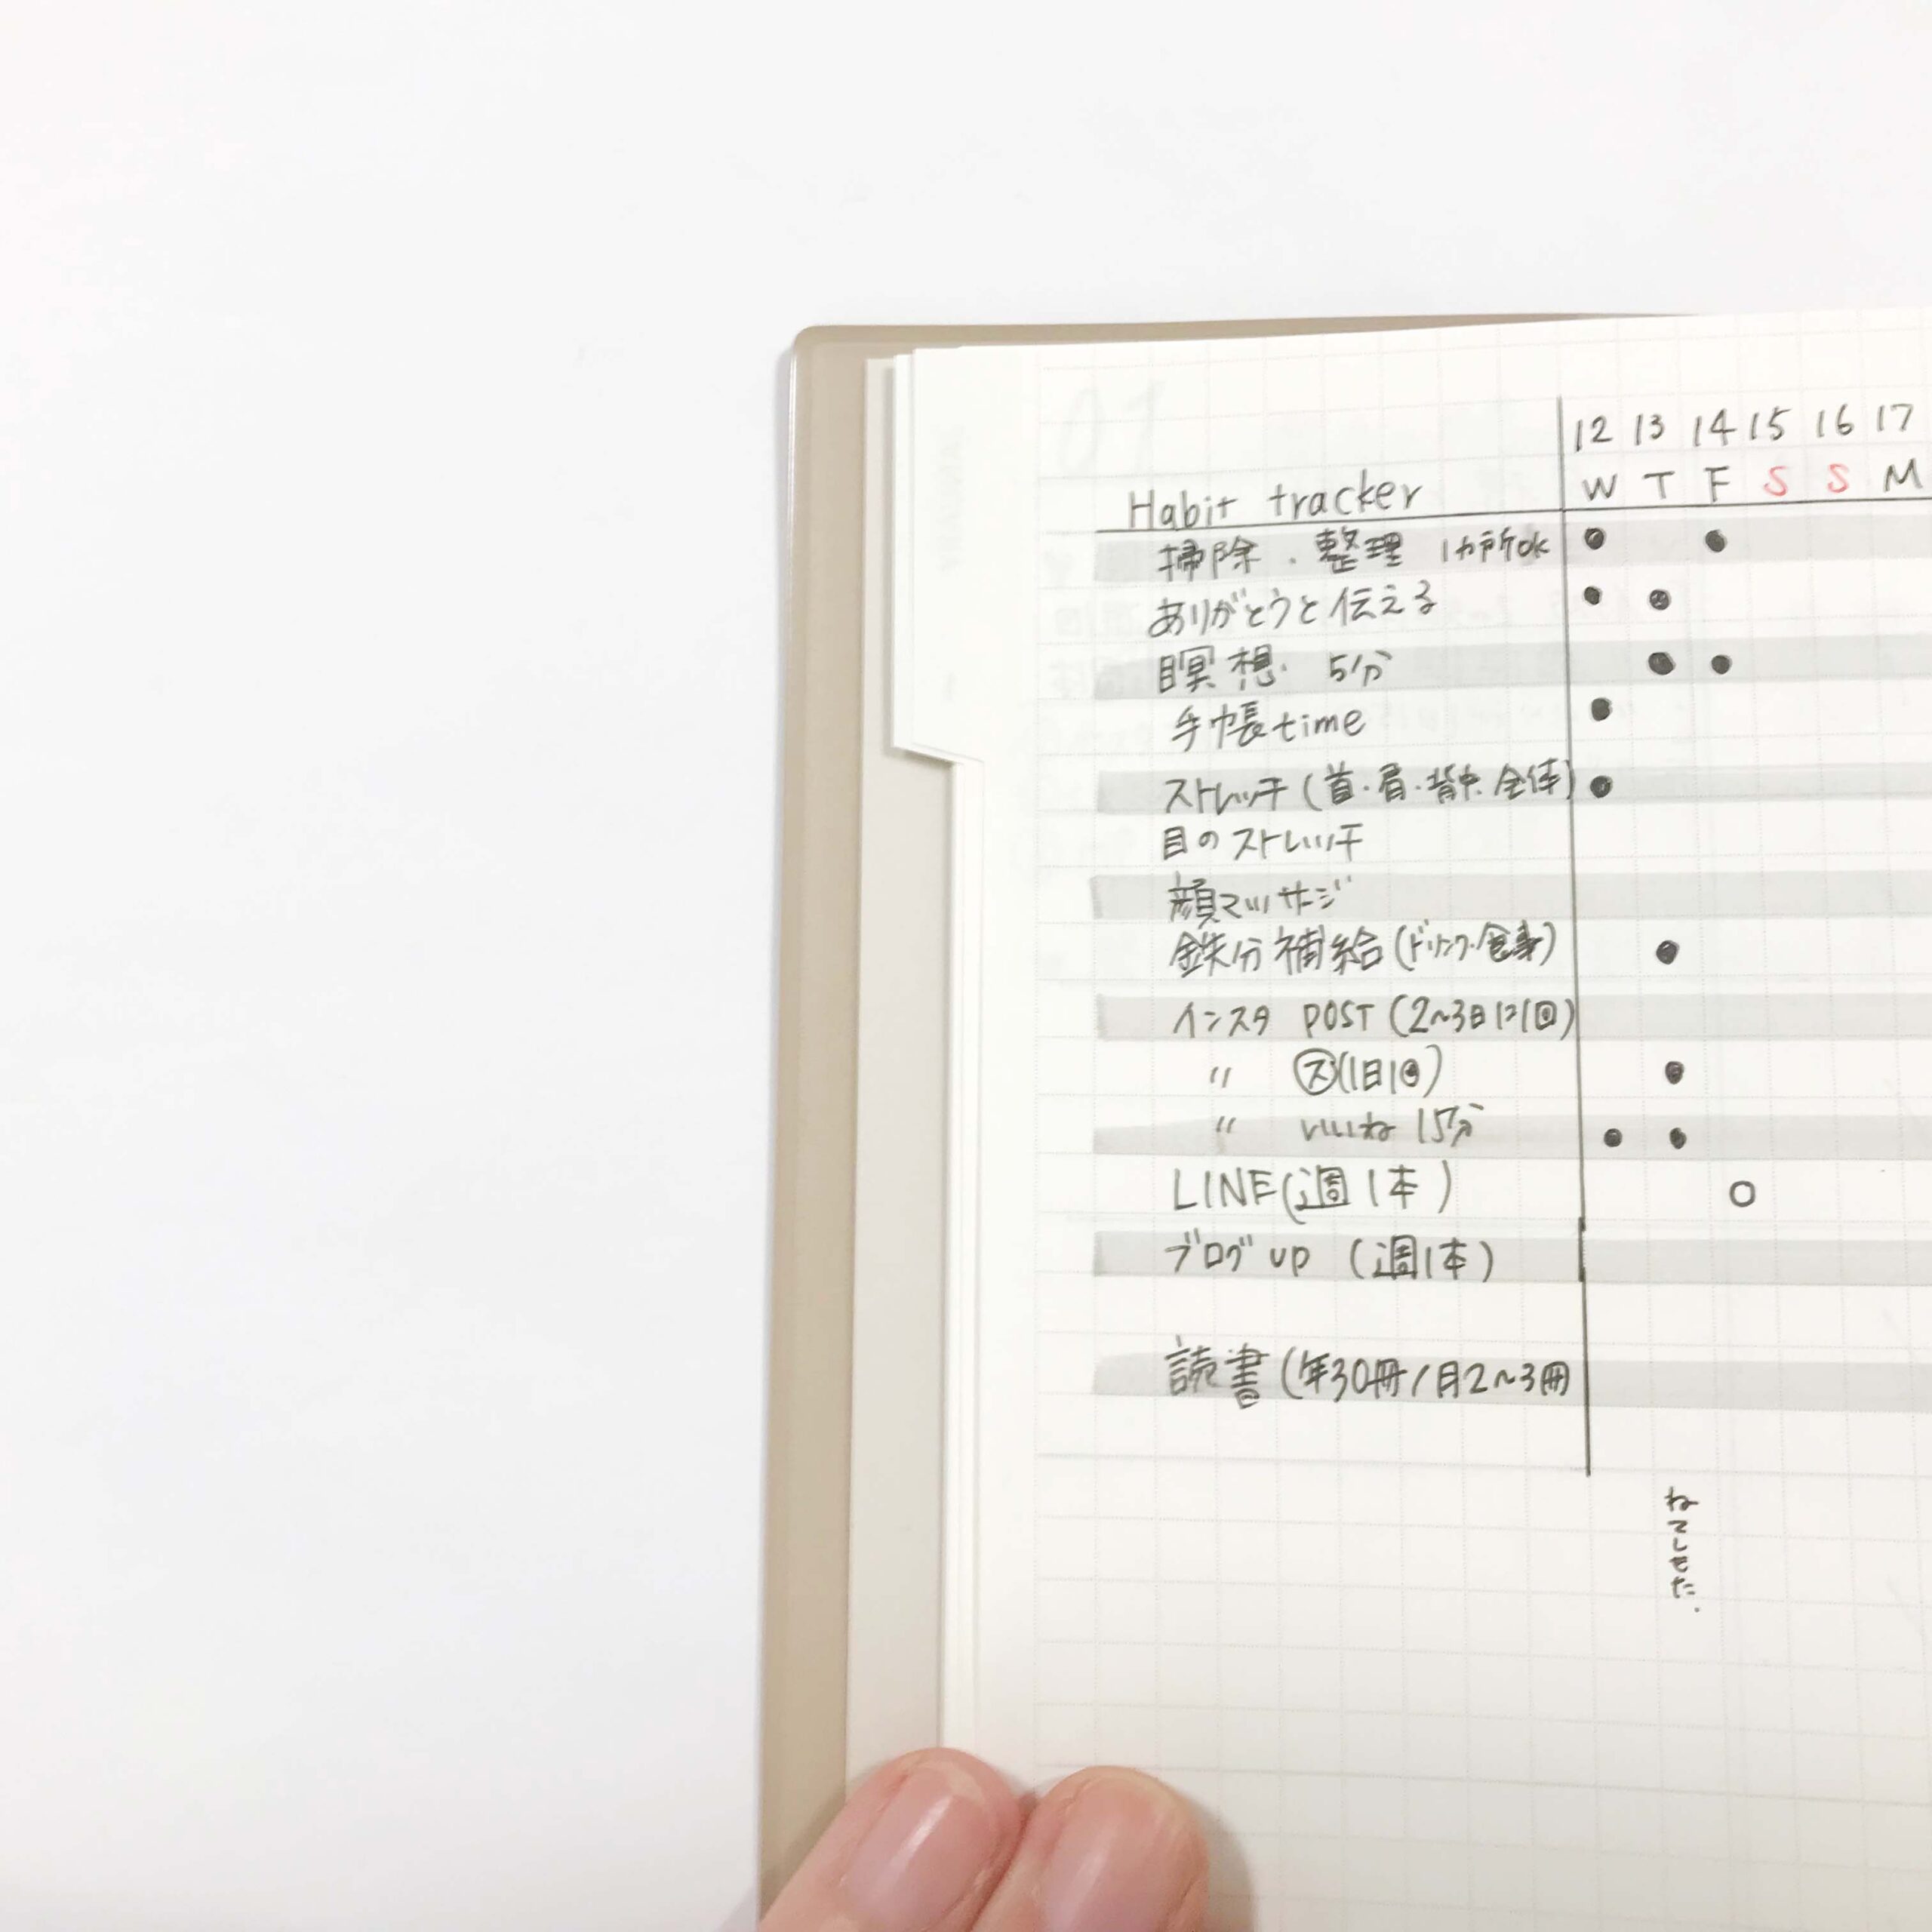 12 13 14 15 16 17
W T F S S M
Habit tracker
掃除・整理 1ヵ所ok ● ●
ありがとうと伝える ● ●
瞑想・5分 ● ●
手帳time ●
ストレッチ(首・肩・背中・全体) ●
目のストレッチ
顔マッサージ
鉄分補給(ドリンク・食事) ●
インスタ POST(2〜3日に1回)
〃 ㋜(1日1回) ●
〃 いいね 15分 ● ●
LINE(週1本) ○
ブログup (週1本)
読書(年30冊/月2〜3冊